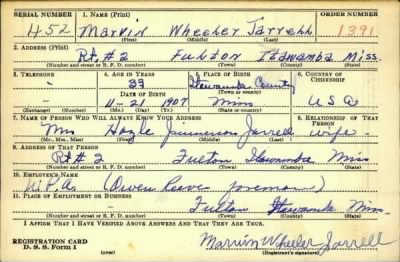 SERIAL NUMBER 1. NAME (Print) ORDER NUMBER
452 Marvin Wheeler Jarrell 1391
(First) (Middle) (Last)
2. ADDRESS (Print)
Rt. #2 Fulton Itawamba Miss.
(Number and street or R. F. D. number) (Town) (County) (State)
3. TELEPHONE 4. AGE IN YEARS 5. PLACE OF BIRTH 6. COUNTRY OF CITIZENSHIP
33 Itawamba County
(Town or county)
DATE OF BIRTH
11-21 1907 Miss USA
(Exchange) (Number) (Mo.) (Day) (Yr.) (State or country)
7. NAME OF PERSON WHO WILL ALWAYS KNOW YOUR ADDRESS 8. RELATIONSHIP OF THAT PERSON
Mrs Jarrell wife
(Mr., Mrs., Miss) (First) (Middle) (Last)
9. ADDRESS OF THAT PERSON
Rt # 2 Fulton Itawamba Miss
(Number and street or R. F. D. number) (Town) (County) (State)
10. EMPLOYER'S NAME
W.P.A. (Owen Reeve foreman)
11. PLACE OF EMPLOYMENT OR BUSINESS
Fulton Itawamba Miss.
(Number and street or R. F. D. number) (Town) (County) (State)
I AFFIRM THAT I HAVE VERIFIED ABOVE ANSWERS AND THAT THEY ARE TRUE.
REGISTRATION CARD
D. S. S. Form 1 (over) Marvin Wheeler Jarrell
(Registrant's signature)